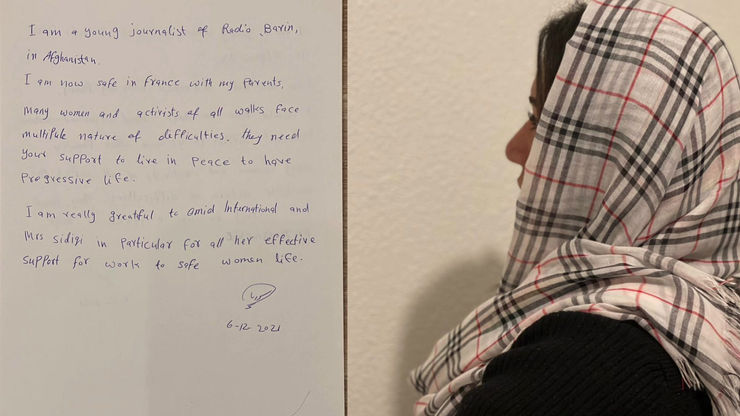 I am a young journalist of Radio Barin,
in Afghanistan.
I am now safe in france with my parents,
Many women and activists of all walks face
multipule nature of difficulties. they need
your support to live in peace to have
progressive life.
I am really greatful to amid International and
Mrs sidiqi in particular for all her effective
support for work to safe women life.
6-12 2021